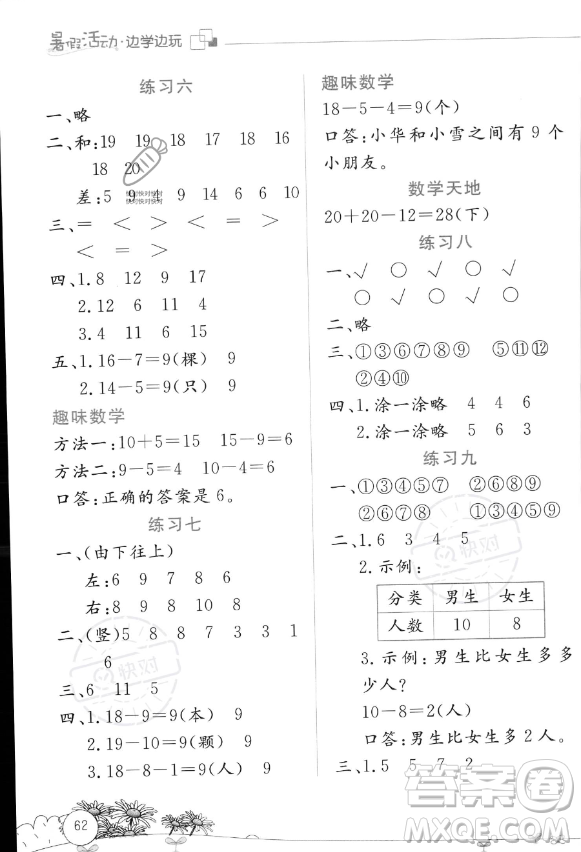 暑假活动·边学边玩
练习六
一、略
二、和:19 19 18 17 18 16
18 20
差:5 9 4 9 6 10
三、＝ ＞ ＜ ＞ ＞
＜ ＝ ＞ ＜ ＝
四、1.8 12 9 17
2.12 6 11 9
3.4 11 6 15
五、1.16－7＝9(棵) 9
2.14－5＝9(只) 9
趣味数学
方法一:10＋5＝15 15－9＝6
方法二:9－5＝4 10－4＝6
口答:正确的答案是6。
练习七
一、(由下往上)
左:6 9 7 8
右:8 9 8 10
二、(竖)5 8 8 7 3 3 1
6
三、6 11 5
四、1.18－9＝9(本) 9
2.19－10＝9(颗) 9
3.18－8－1＝9(人) 9
62
趣味数学
18－5－4＝9(个)
口答:小华和小雪之间有9个
小朋友。
数学天地
20＋20－12＝28(下)
练习八
一、√ ○ √ ○ √
○ √ ○ √ ○
二、略
三、①③⑥⑦⑧⑨ ⑤⑪⑫
②④⑩
四、1.涂一涂略 4 4 6
2.涂一涂略 5 6 3
练习九
一、①③④⑤⑦ ②⑥⑧⑨
②⑥⑦⑧ ①③④⑤⑨
二、1.6 3 4 5
2.示例:
分类 男生 女生
人数 10 8
3.示例:男生比女生多多
少人?
10－8＝2(人)
口答:男生比女生多2人。
三、1.5 5 7 2
答案圈
MXQE.COM
快对